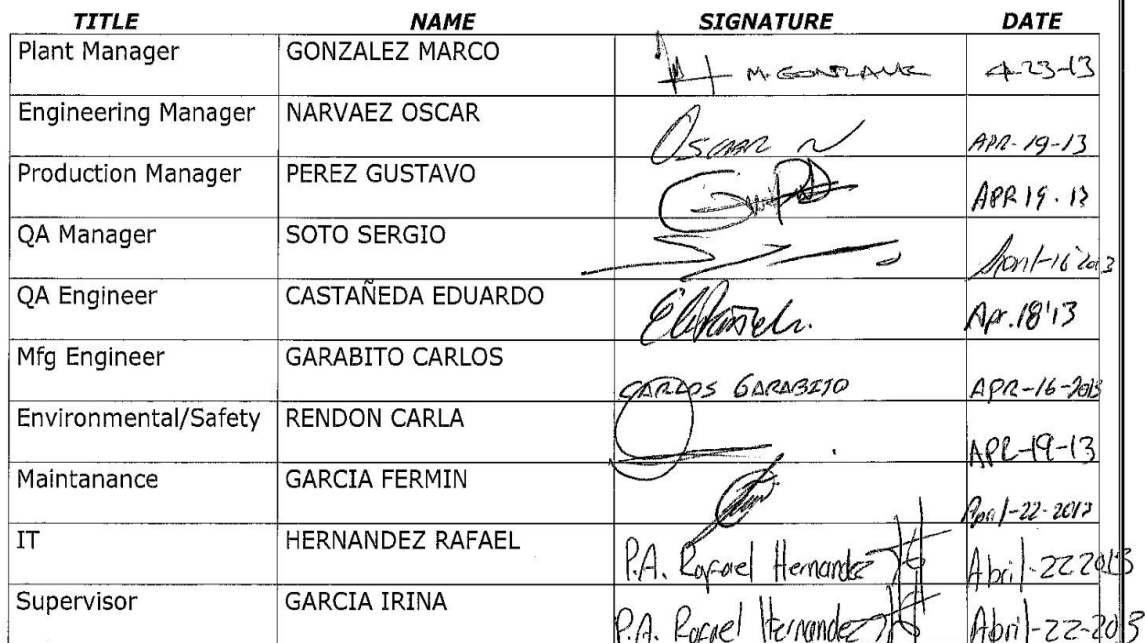 TITLE NAME SIGNATURE DATE
Plant Manager GONZALEZ MARCO M. GONZALEZ 4-23-13
Engineering Manager NARVAEZ OSCAR OSCAR N APR-19-13
Production Manager PEREZ GUSTAVO APR 19. 13
QA Manager SOTO SERGIO April-16 2013
QA Engineer CASTAÑEDA EDUARDO Apr.18'13
Mfg Engineer GARABITO CARLOS CARLOS GARABITO APR-16-2013
Environmental/Safety RENDON CARLA APR-19-13
Maintanance GARCIA FERMIN April-22-2013
IT HERNANDEZ RAFAEL P.A. Rafael Hernandez Abril-22 2013
Supervisor GARCIA IRINA P.A. Rafael Hernandez Abril-22-2013